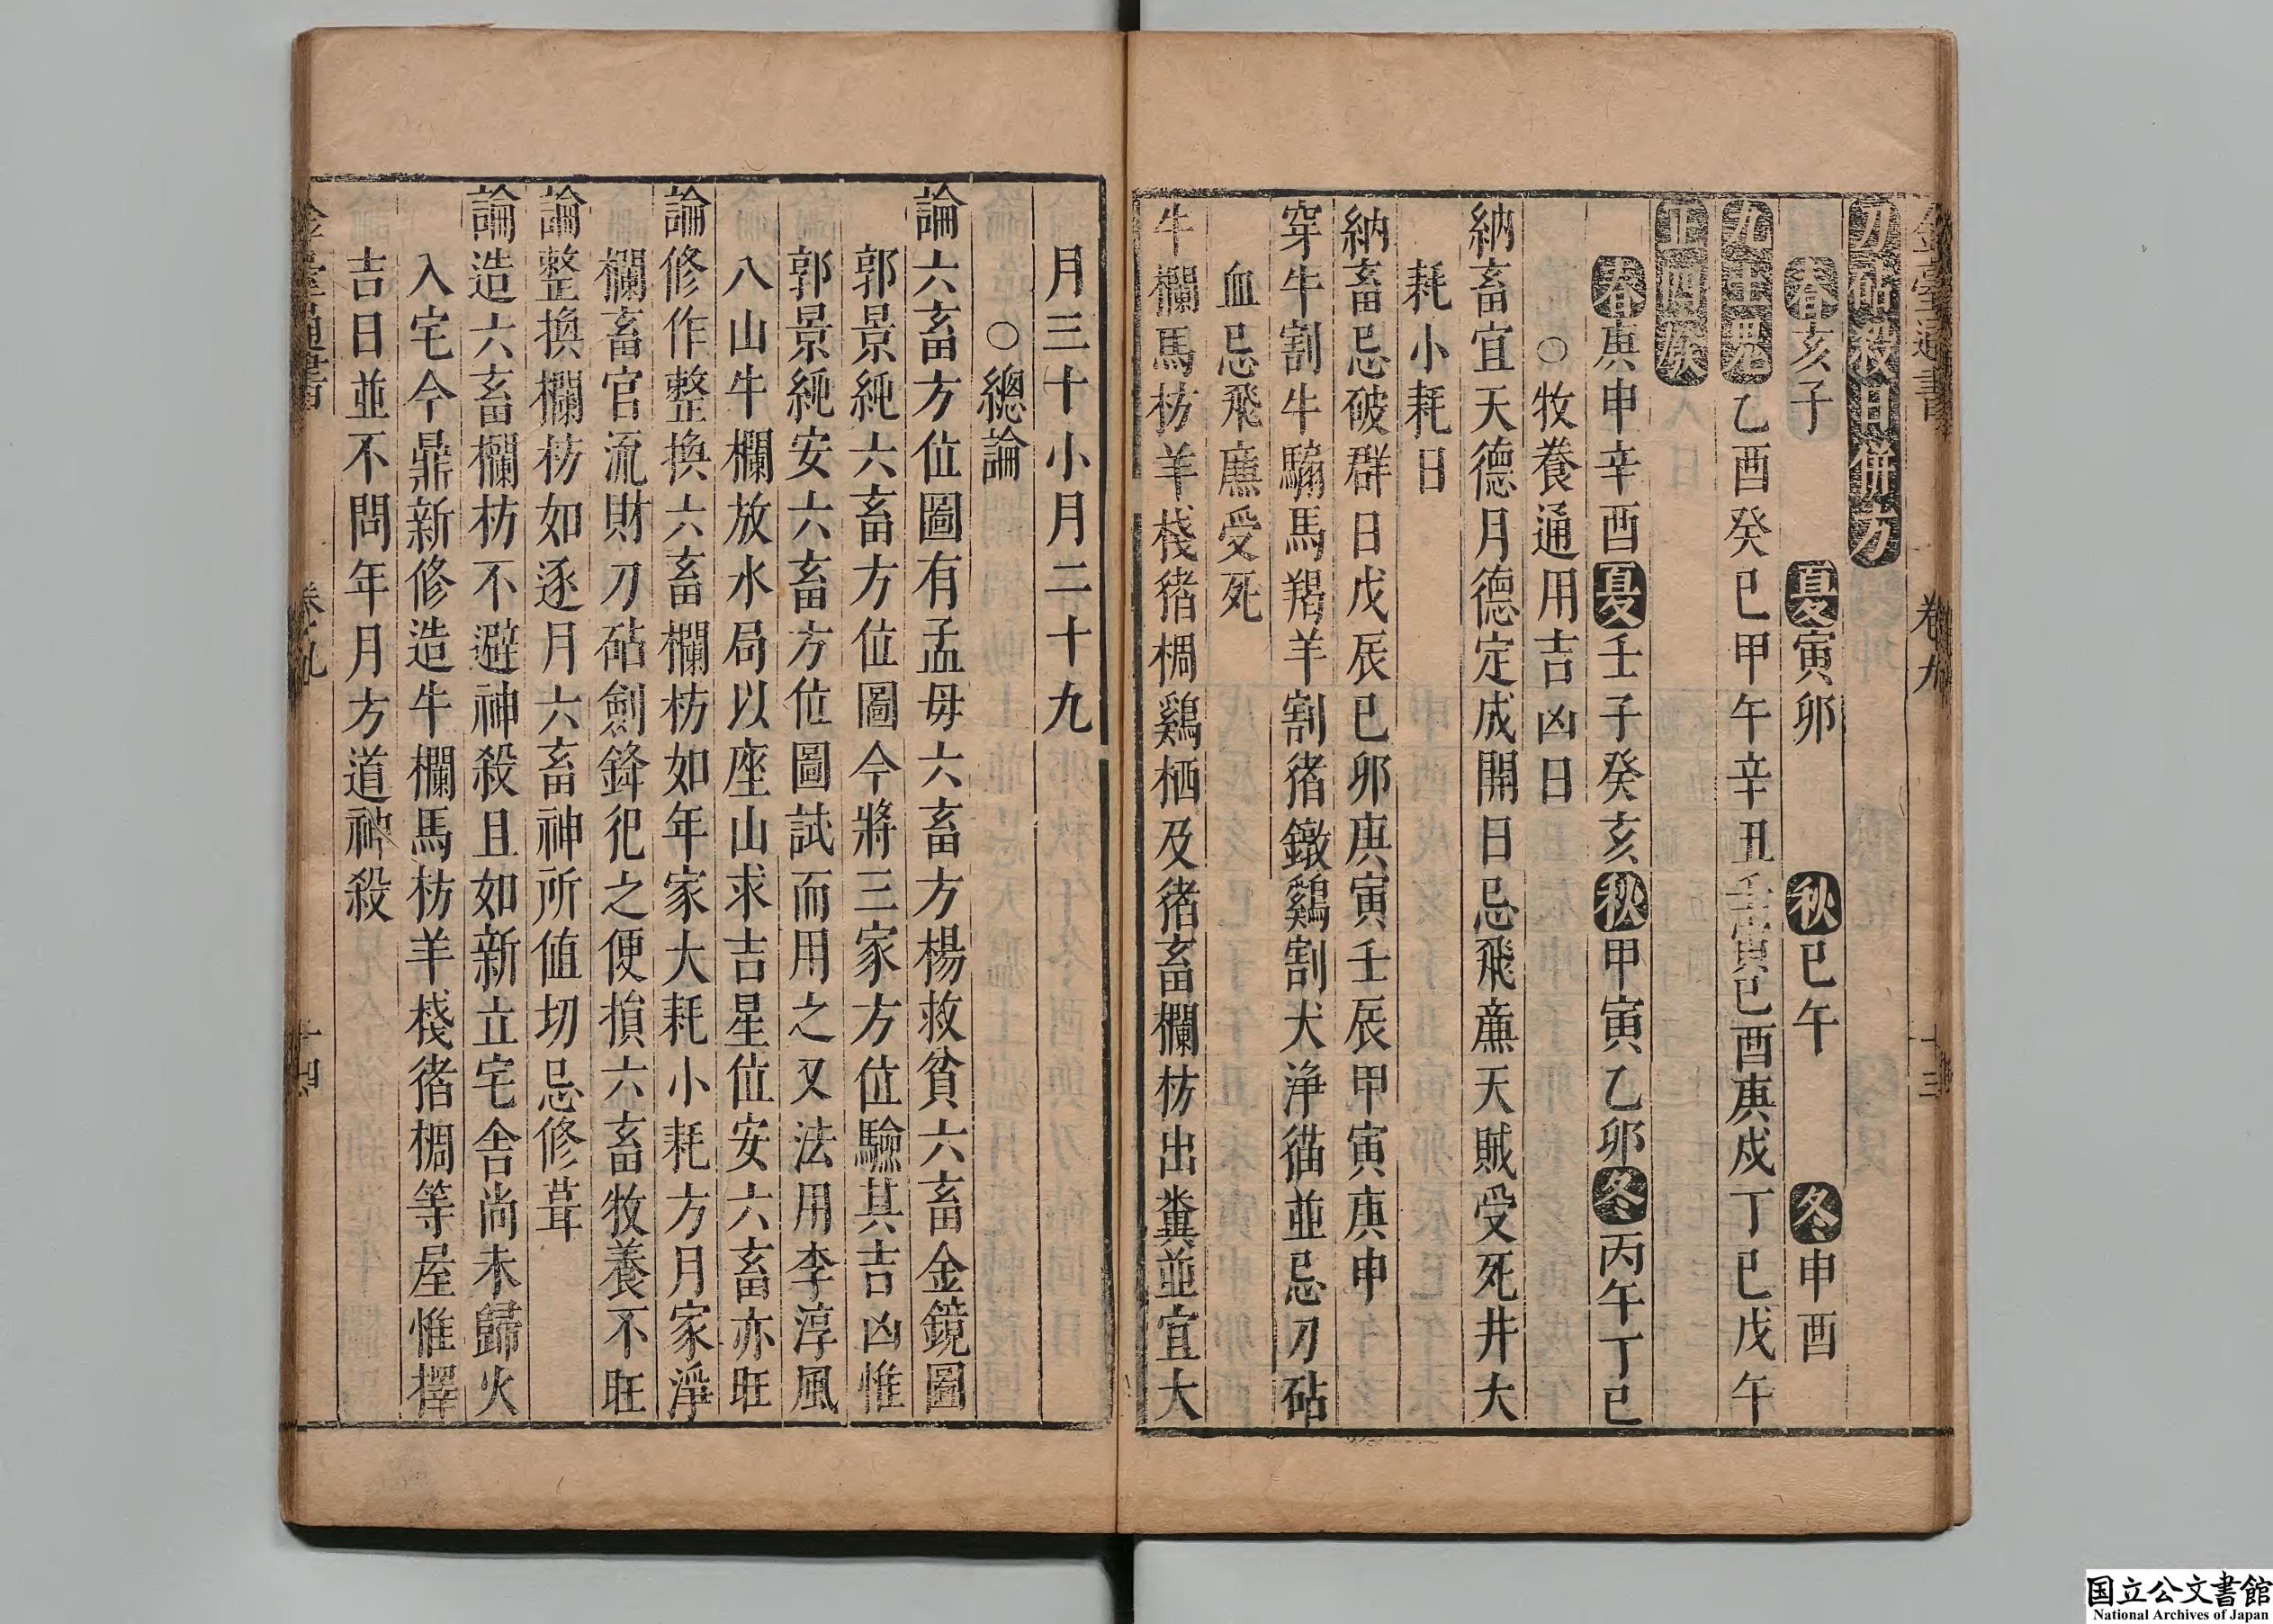 金臺通書 卷九 十三
刀砧殺日併方
春亥子 夏寅卯 秋巳午 冬申酉
九土鬼乙酉癸巳甲午辛丑壬寅己酉庚戌丁巳戊午
正四廢
春庚申辛酉夏壬子癸亥秋甲寅乙卯冬丙午丁巳
○牧養通用吉凶日
納畜宜天德月德定成開日忌飛廉天賊受死井大
耗小耗日
納畜忌破群日戊辰己卯庚寅壬辰甲寅庚申
穿牛割牛騸馬羯羊割猪鐓鷄割犬浄猫並忌刀砧
血忌飛廉受死
牛欄馬枋羊棧猪椆鷄栖及猪畜欄枋出糞並宜大
月三十小月二十九
○總論
論六畜方位圖有孟毋六畜方楊救貧六畜金鏡圖
郭景純六畜方位圖今將三家方位驗其吉凶惟
郭景純安六畜方位圖試而用之又法用李淳風
八山牛欄放水局以座山求吉星位安六畜亦旺
論修作整換六畜欄枋如年家大耗小耗方月家淨
欄畜官流財刀砧劍鋒犯之便損六畜牧養不旺
論整換欄枋如逐月六畜神所値切忌修葺
論造六畜欄枋不避神殺且如新立宅舍尚未歸火
入宅今鼎新修造牛欄馬枋羊棧猪椆等屋惟擇
吉日並不問年月方道神殺
金臺通書 卷九 十四
国立公文書館
National Archives of Japan